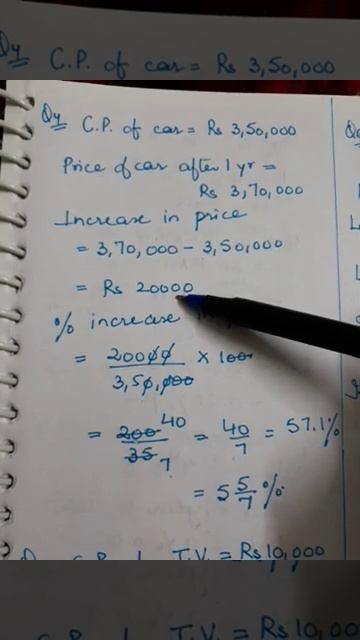 Qy C.P. of car = Rs 3,50,000
Qy C.P. of car = Rs 3,50,000
Price of car after 1 yr =
Rs 3,70,000
Increase in price
= 3,70,000 - 3,50,000
= Rs 20000
% increase
= 20000/3,50,000 × 100
= 200/35 40/7 = 40/7 = 57.1%
= 5 5/7 %
T.V. = Rs 10,000
T.V. = Rs 10,00